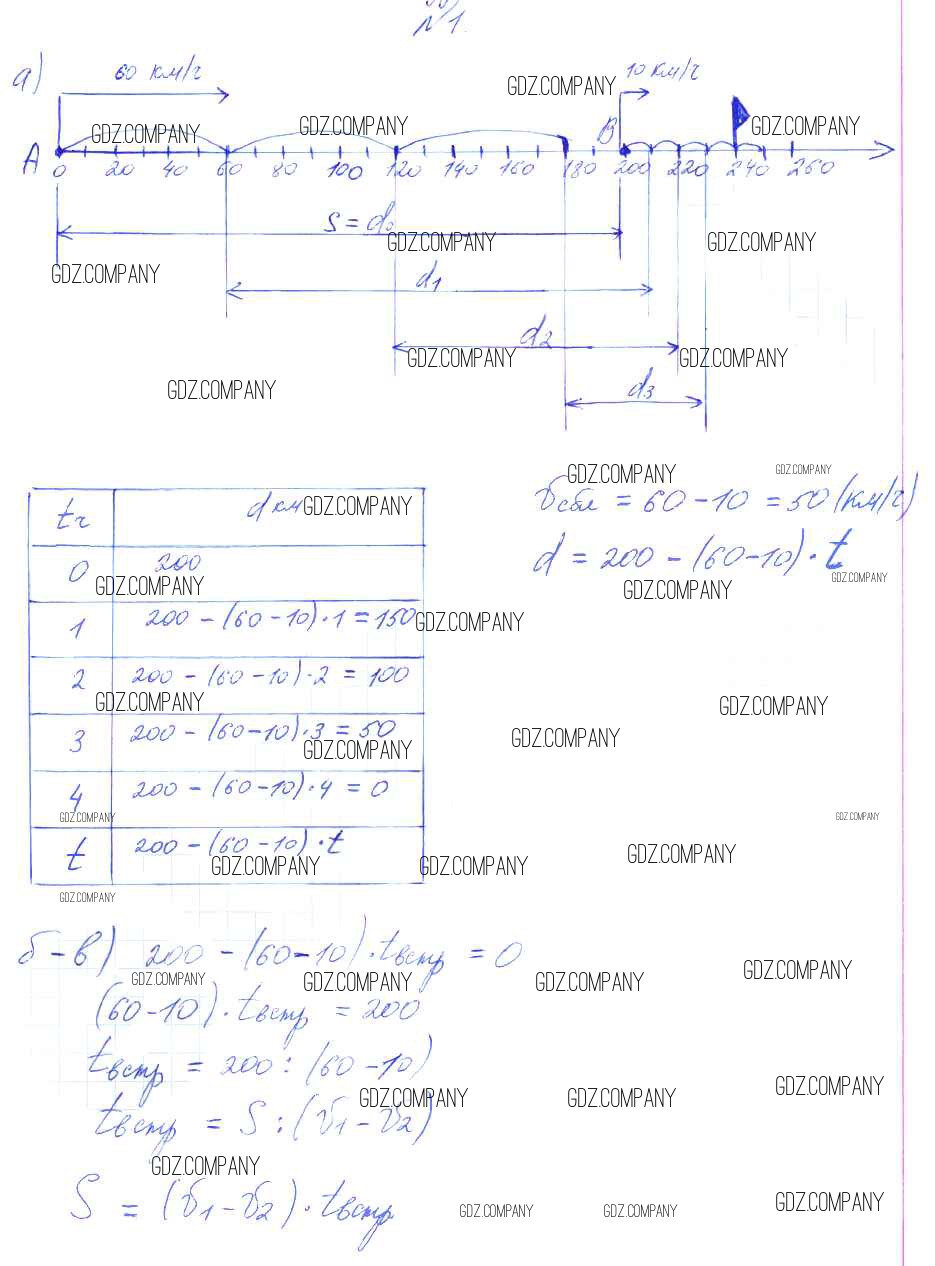 №1.
а) 60 км/ч 10 км/ч
GDZ.COMPANY
GDZ.COMPANY GDZ.COMPANY В GDZ.COMPANY
А 0 20 40 60 80 100 120 140 160 180 200 220 240 260
S = d₀
GDZ.COMPANY GDZ.COMPANY
GDZ.COMPANY
d₁
d₂
GDZ.COMPANY GDZ.COMPANY
GDZ.COMPANY
d₃
GDZ.COMPANY GDZ.COMPANY
tч d км GDZ.COMPANY
𝑣сбл = 60 - 10 = 50 (км/ч)
d = 200 - (60-10)·t
0 200
GDZ.COMPANY GDZ.COMPANY GDZ.COMPANY
1 200 - (60-10)·1 = 150 GDZ.COMPANY
2 200 - (60-10)·2 = 100
GDZ.COMPANY GDZ.COMPANY
3 200 - (60-10)·3 = 50
GDZ.COMPANY GDZ.COMPANY
4 200 - (60-10)·4 = 0
GDZ.COMPANY GDZ.COMPANY
t 200 - (60-10)·t
GDZ.COMPANY GDZ.COMPANY GDZ.COMPANY
GDZ.COMPANY
б-в) 200 - (60-10)·tвстр = 0
GDZ.COMPANY GDZ.COMPANY GDZ.COMPANY GDZ.COMPANY
(60-10)·tвстр = 200
tвстр = 200 : (60-10)
GDZ.COMPANY GDZ.COMPANY GDZ.COMPANY
tвстр = S : (𝑣₁ - 𝑣₂)
GDZ.COMPANY
S = (𝑣₁ - 𝑣₂)·tвстр
GDZ.COMPANY GDZ.COMPANY GDZ.COMPANY